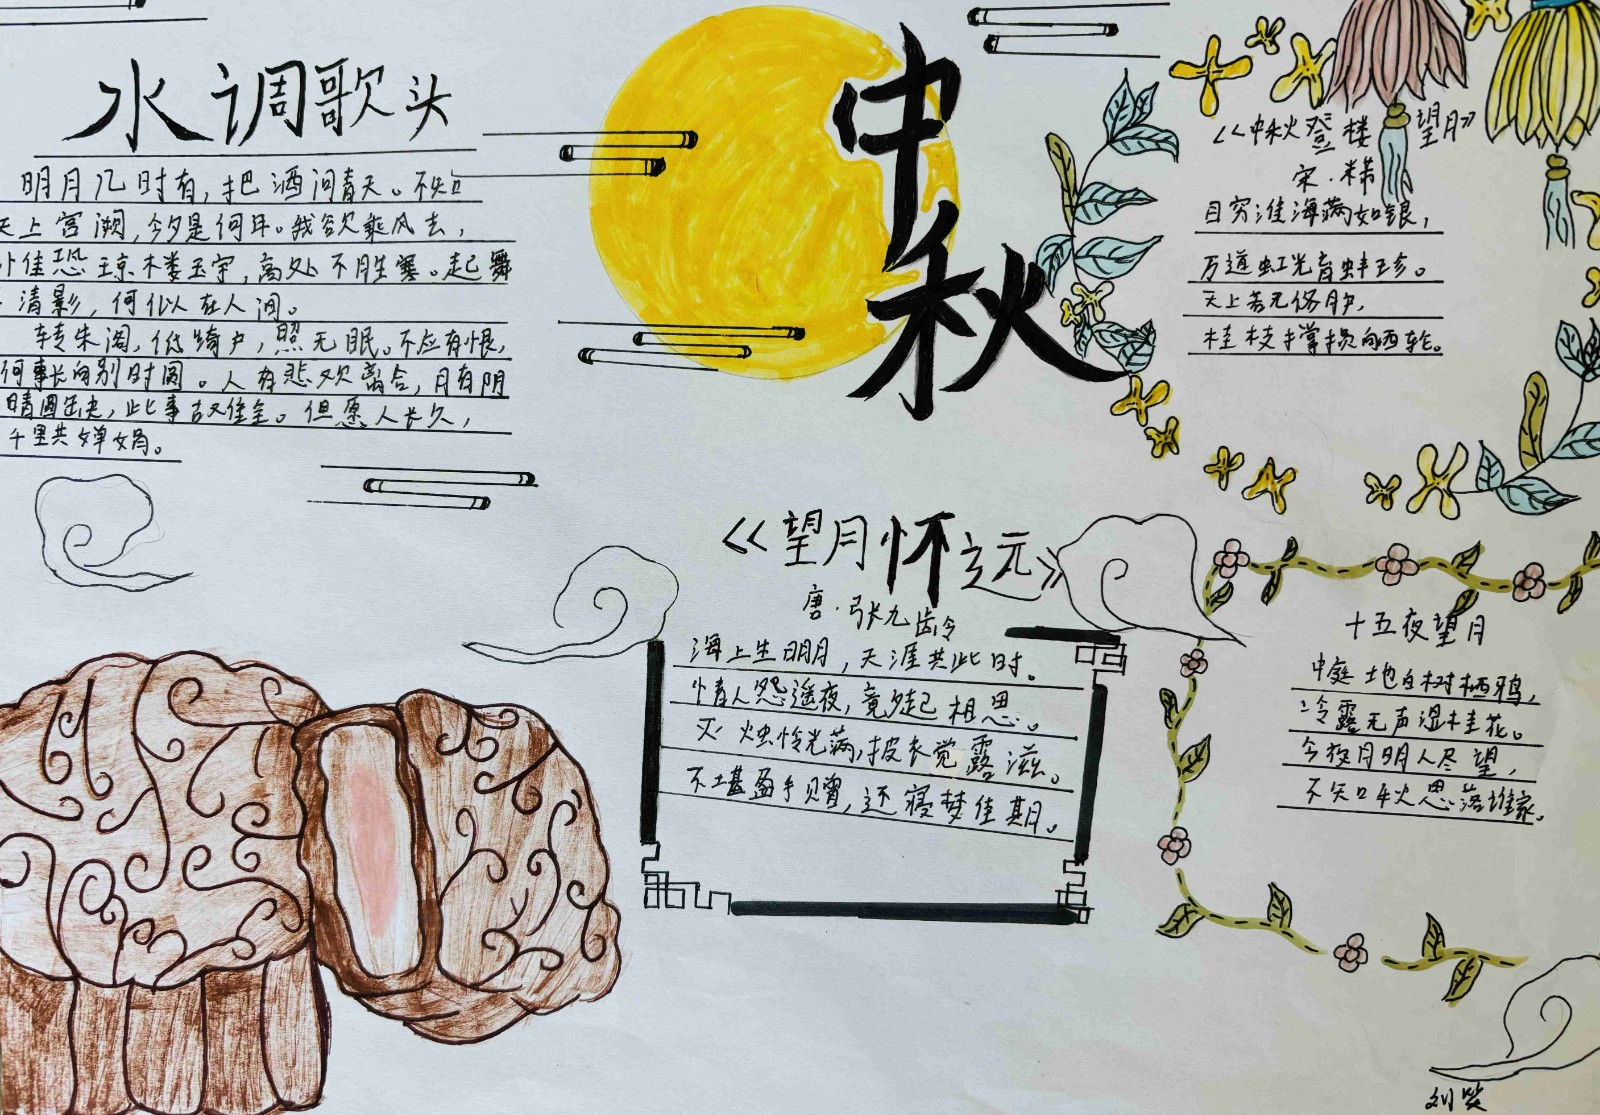 水调歌头
明月几时有，把酒问青天。不知
天上宫阙，今夕是何年。我欲乘风去，
恐琼楼玉宇，高处不胜寒。起舞
清影，何似在人间。
转朱阁，低绮户，照无眠。不应有恨，
何事长向别时圆。人有悲欢离合，月有阴
晴圆缺，此事古难全。但愿人长久，
千里共婵娟。
中秋
《中秋登楼望月》
宋·米芾
目穷淮海满如银，
万道虹光育蚌珍。
天上若无修月户，
桂枝撑损向西轮。
《望月怀远》
唐·张九龄
海上生明月，天涯共此时。
情人怨遥夜，竟夕起相思。
灭烛怜光满，披衣觉露滋。
不堪盈手赠，还寝梦佳期。
十五夜望月
中庭地白树栖鸦，
冷露无声湿桂花。
今夜月明人尽望，
不知秋思落谁家。
刘笑